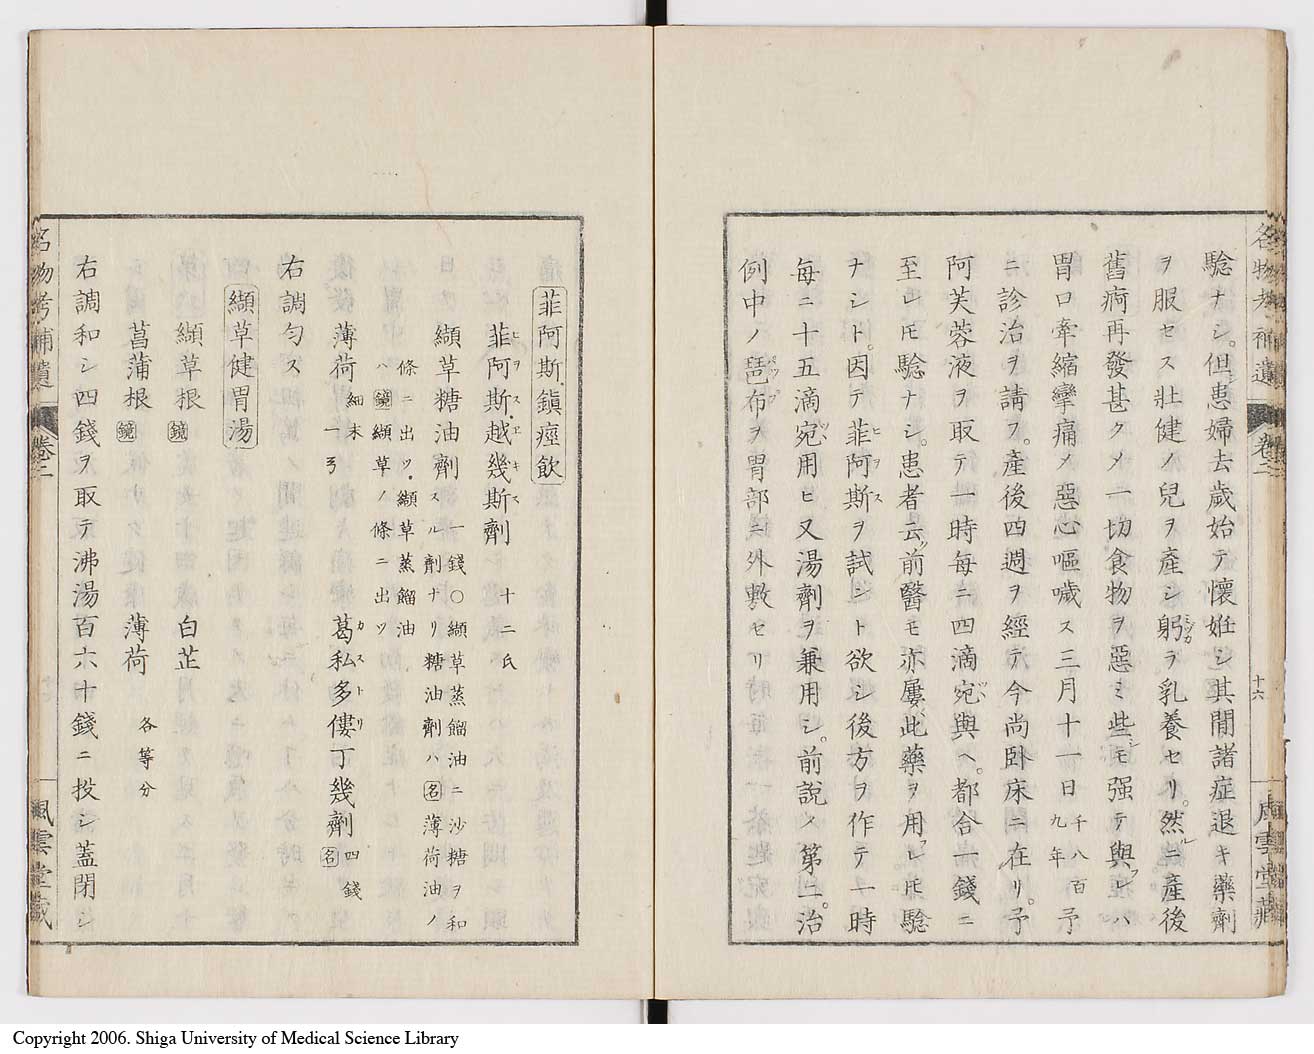 名物考補遺 卷二 十六 風雲堂藏
驗ナシ。但患婦去歳始テ懷妊シ其間諸症退キ藥劑
ヲ服セス壯健ノ兒ヲ産シ躬ヲ乳養セリ。然ルニ産後
舊痾再發甚クメ一切食物ヲ惡ミ些モ强テ與レハ
胃口牽縮攣痛メ惡心嘔噦ス三月十一日千八百九年予
ニ診治ヲ請フ。産後四週ヲ經テ今尚臥床ニ在リ。予
阿芙蓉液ヲ取テ一時每ニ四滴宛與ヘ。都合一錢ニ
至レモ驗ナシ。患者云前醫モ亦屢此藥ヲ用レモ驗
ナシト。因テ菲阿斯ヲ試ント欲シ後方ヲ作テ一時
每ニ十五滴宛用ヒ又湯劑ヲ兼用シ。前說ノ第二治
例中ノ琶布ヲ胃部ニ外敷セリ
菲阿斯鎭痙飲
菲阿斯.越幾斯劑 十二氏
纈草糖油劑 一錢○纈草蒸餾油ニ沙糖ヲ和スル劑ナリ糖油劑ハ名薄荷油ノ
條ニ出ツ.纈草蒸餾油ハ鏡纈草ノ條ニ出ツ
薄荷細末一ヲ 葛私多僂丁幾劑四錢名
右調勻ス
纈草健胃湯
纈草根鏡 白芷
菖蒲根鏡 薄荷 各等分
右調和シ四錢ヲ取テ沸湯百六十錢ニ投シ蓋閉シ
名物考補遺 卷二 風雲堂藏
Copyright 2006. Shiga University of Medical Science Library